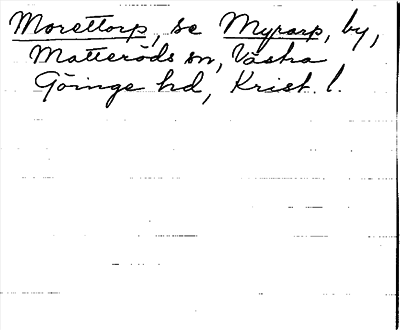 Morettorp, se Myrarp, by,
Matteröds sn, Västra
Göinge hd, Krist. l.